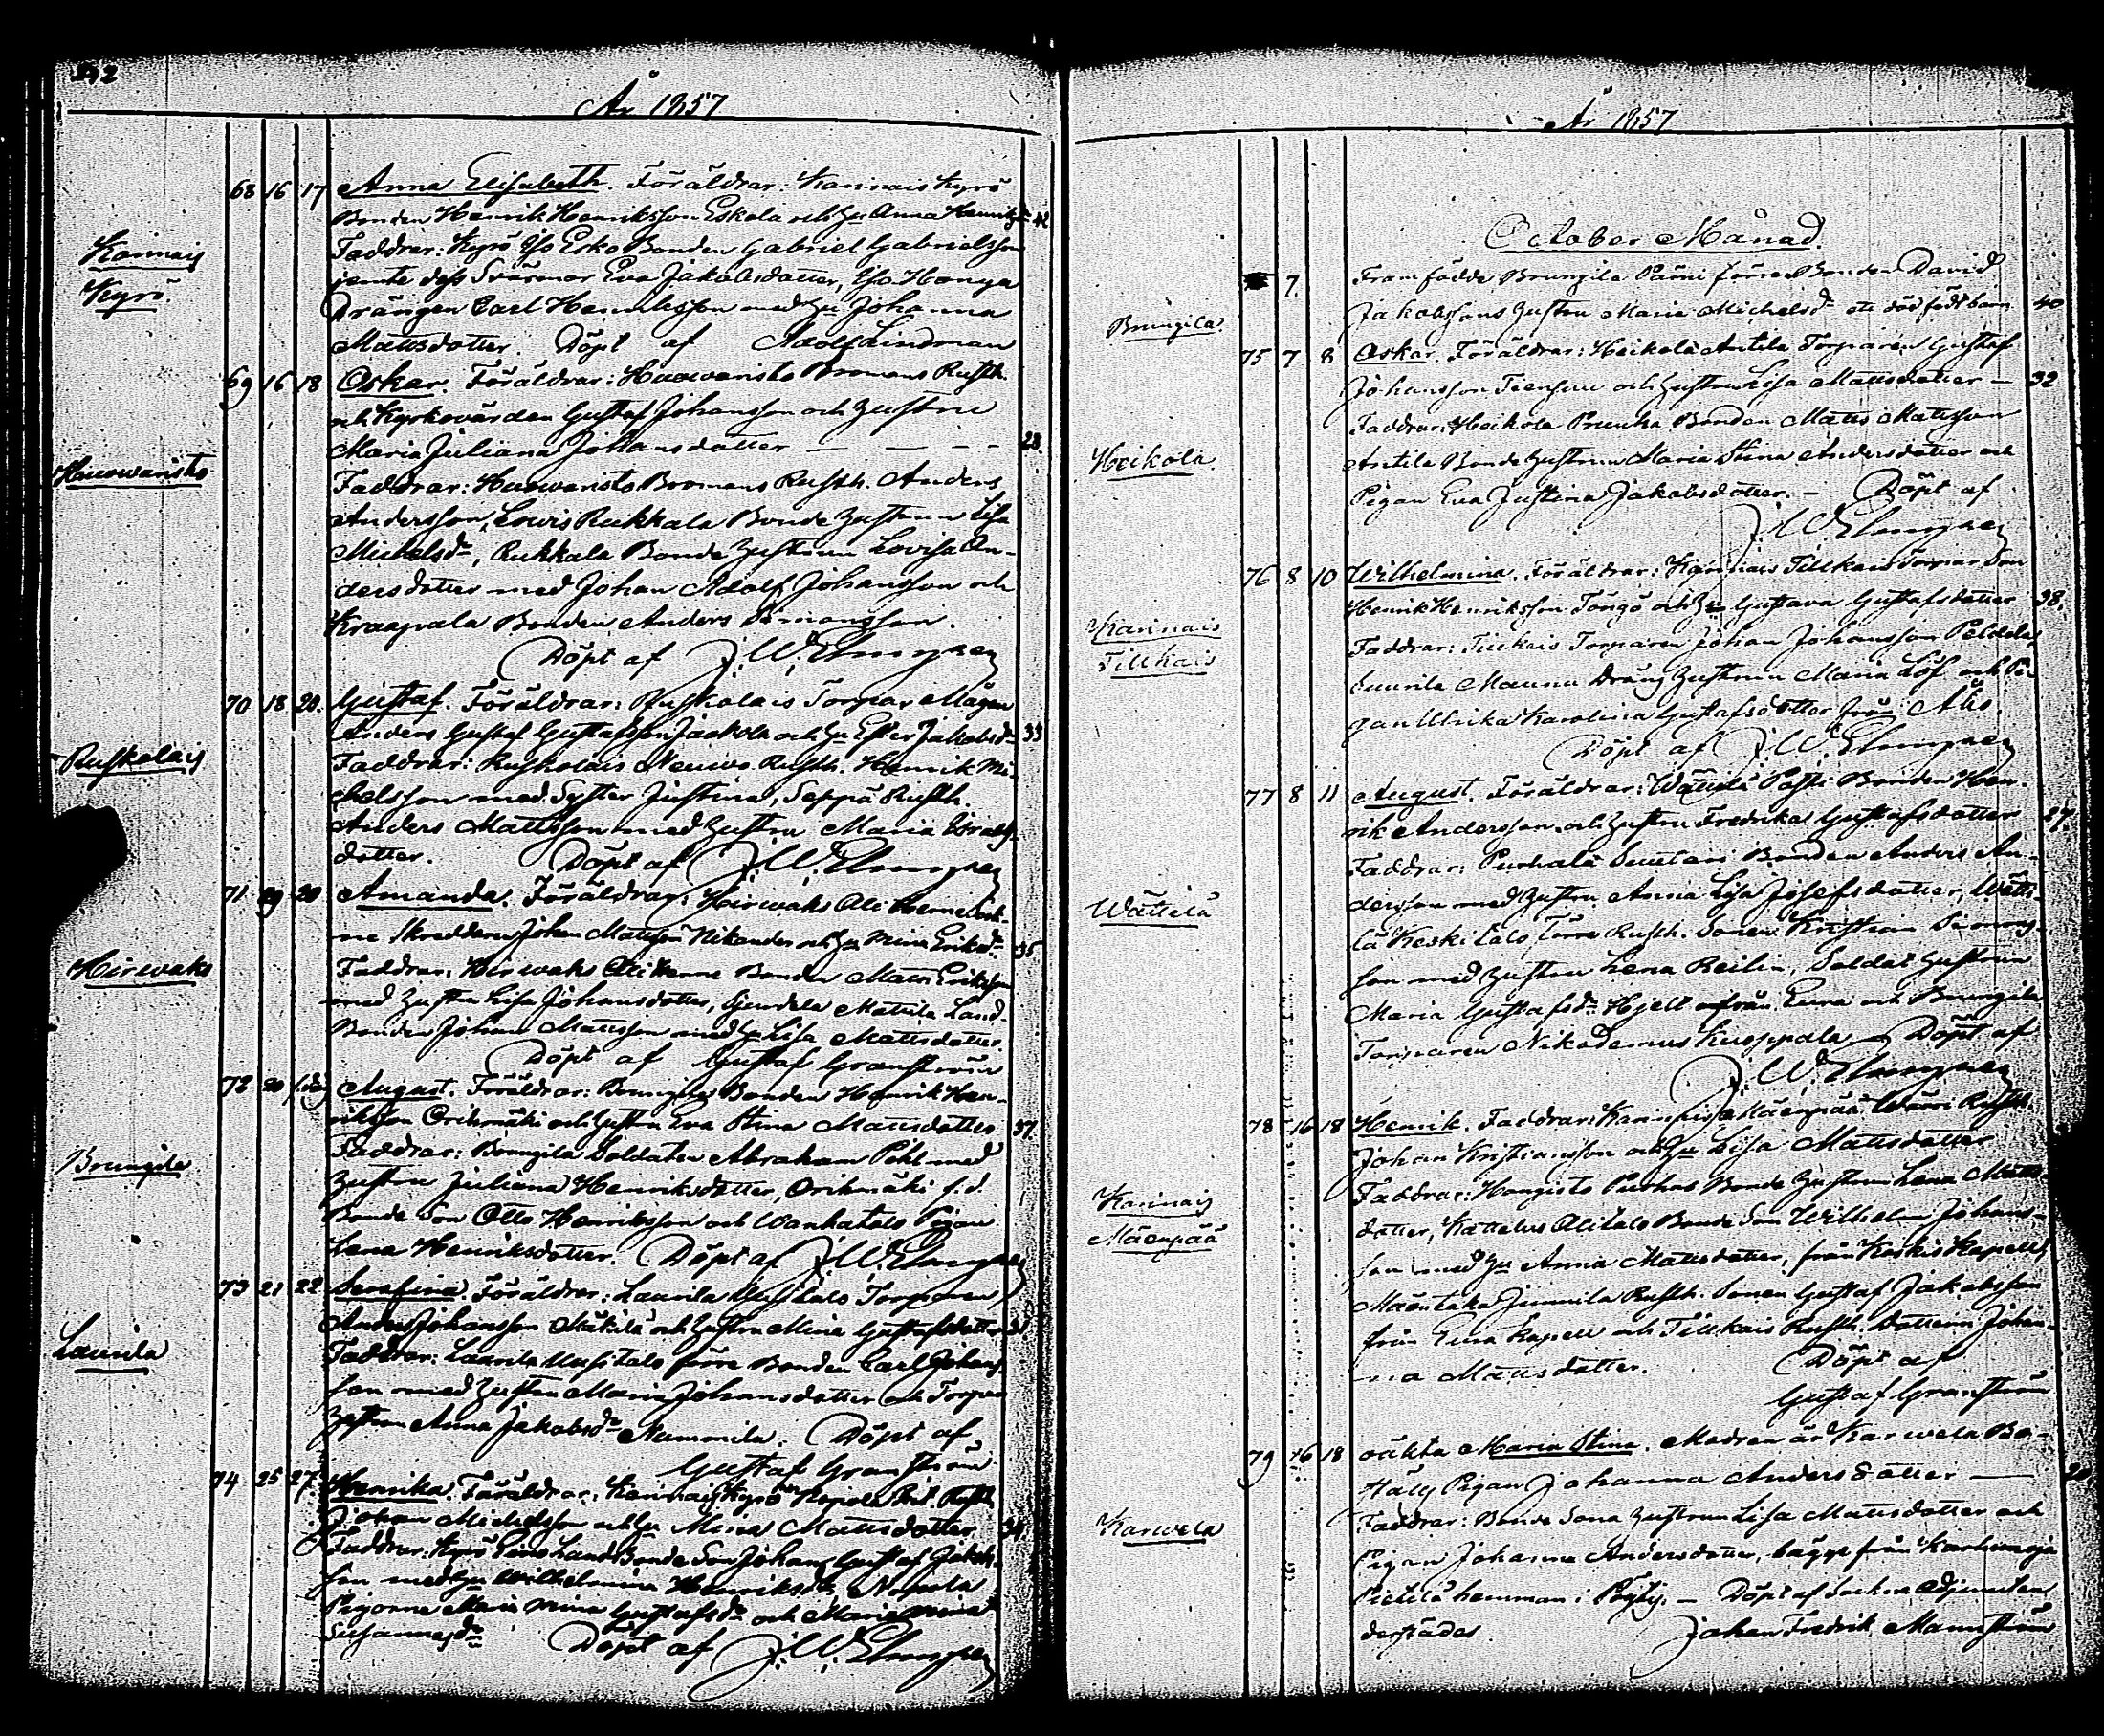 292
År 1857
Karinais
Kyrö.
68 16 17 Anna Elisabeth. Föräldrar: Karinais Kyrö
Bonden Henrik Henriksson Eskola och Hu Anna Henriksdr 42
Faddrar: Kyrö Iso Erko Bonden Gabriel Gabrielsson
jemte dess Svärmor Eva Jakobsdotter, Iso Honga
Drängen Carl Henriksson med Hu Johanna
Mattsdotter. Döpt af Adolf Lindman
69 16 18 Oskar. Föräldrar: Huowaristo Bromans Rusth.
och Kyrkovärden Gustaf Johansson och Hustru
Maria Juliana Johansdotter — — — 28.
Huowaristo
Faddrar: Huowaristo Bromans Rusth. Anders
Andersson, Lowis Rukkala Bonde Hustrun Lisa
Michelsdr, Rukkala Bonde Hustrun Lovisa An-
dersdotter med Johan Adolf Johansson och
Kraapala Bonden Anders Simonsson.
Döpt af J. W. Elmgren
70 18 20. Gustaf. Föräldrar: Ruskolais Torpar Mågen
Anders Gustaf Gustafsson Jaakola och Hu Ester Jakobsdr 33
Ruskolais
Faddrar: Ruskolais Neuwo Rusth. Henrik Mi-
chelsson med Syster Justina, Seppä Rusth.
Anders Mattsson med Hustru Maria Israels-
dotter. Döpt af J. W. Elmgren
71 19 20 Amanda. Föräldrar: Hirwaks Ali Herne
Skreddern Johan Mattsson Nikander och Hu Mina Eriksdr 35
Hirwaks
Faddrar: Hirwaks Ali Herne Bonden Matts Eriksson
med Hustru Lisa Johansdotter, Mattila Land-
Bonden Johan Mattsson med Hu Lisa Mattsdotter.
Döpt af Gustaf Granström
72 20 August. Föräldrar: Brungila Bonden Henrik Hen-
riksson Orihmäki och Hustru Eva Stina Mattsdotter 37.
Brungila
Faddrar: Brungila Soldaten Abraham Pihl med
Hustru Juliana Henriksdotter, Orihmäki f.d.
Bonde Son Otto Henriksson och Wanhatalo Pigan
Lena Henriksdotter. Döpt af J. W. Elmgren
73 21 22 Serafina. Föräldrar: Laurila Uusitalo Torparen
Anders Johansson Mäkilä och Hustru Mina Gustafsdotter
Laurila
Faddrar: Laurila Uusitalo förre Bonden Carl Johans-
son med Hustru Maria Johansdotter och Torpare
Hustrun Anna Jakobsdr Nummila. Döpt af
Gustaf Granström
74 25 27. Henrika. Föräldrar: Karinais Kyrö Rusth.
Johan Michelsson och Hu Mina Mattsdotter
Faddrar: Kyrö LandBonde Son Johan Gustaf Jakobs-
son med Hu Wilhelmina Henriksdr,
Pigorne Maria Mina Gustafsdr och Maria Mina
Susannasdr Döpt af J. W. Elmgren
År 1857
October Månad.
7. Framfödde Brungila Pärni förre Bonden David
Jakobssons Hustru Maria Michelsdr ett dödfödt barn 40
Brungila
75 7 8 Oskar. Föräldrar: Heikola Antila Torparen Gustaf
Johansson och Hustrun Lisa Mattsdotter — 32
Heikola
Faddrar: Heikola Prunka Bonden Matts Mattsson
Antila Bonde Hustrun Maria Stina Andersdotter och
Pigan Eva Justina Jakobsdotter. — Döpt af
J. W. Elmgren
76 8 10 Wilhelmina. Föräldrar: Karinais Tillkais Torpar Son
Henrik Henriksson och Hu Gustava Gustafsdotter 38.
Karinais
Tillkais
Faddrar: Tillkais Torparen Johan Johansson
Laurila Maunu Dräng Hustrun Maria Löf och Pi-
gan Ulrika Karolina Gustafsdotter från Åbo.
Döpt af J. W. Elmgren
77 8 11 August. Föräldrar: Wättilä Bonden Hen-
rik Andersson och Hustru Fredrika Gustafsdotter 27.
Wättilä
Faddrar: Purhala Bonden Anders An-
dersson med Hustru Anna Lisa Josefsdotter, Wätti-
lä Keskitalo förre Rusth. Sonen Kristian Simons-
son med Hustrun Lena Reilin, Soldat Hustrun
Maria Gustafsdr Hjelt från Eura och Brungila
Torparen Nikodemus Kuoppala. Döpt af
J. W. Elmgren
78 16 18 Henrik. Faddrar: Karinais Mäenpää Rusth.
Johan Kristiansson och Hu Lisa Mattsdotter
Karinais
Mäenpää
Faddrar: Hongisto Purhas Bonde Hustrun Lena Matts-
dotter, Kattelus Alitalo Bonde Son Wilhelm Johans-
son med Hu Anna Mattsdotter, från Koskis Kapell,
Mäentaka Rusth. Sonen Gustaf Jakobsson
från Eura Kapell och Tillkais Rusth. Dottern Johan-
na Mattsdotter. Döpt af
Gustaf Granström
79 16 18 oäkta Maria Stina. Modren är Karwela
Pigan Johanna Andersdotter —
Karwela
Faddrar: Bonde Sona Hustrun Lisa Mattsdotter och
Pigan Johanna Andersdotter, bägge från
hemman i Pöytis. — Döpt af Sockne Adjuncten
derstädes. Johan Fredrik Mannström